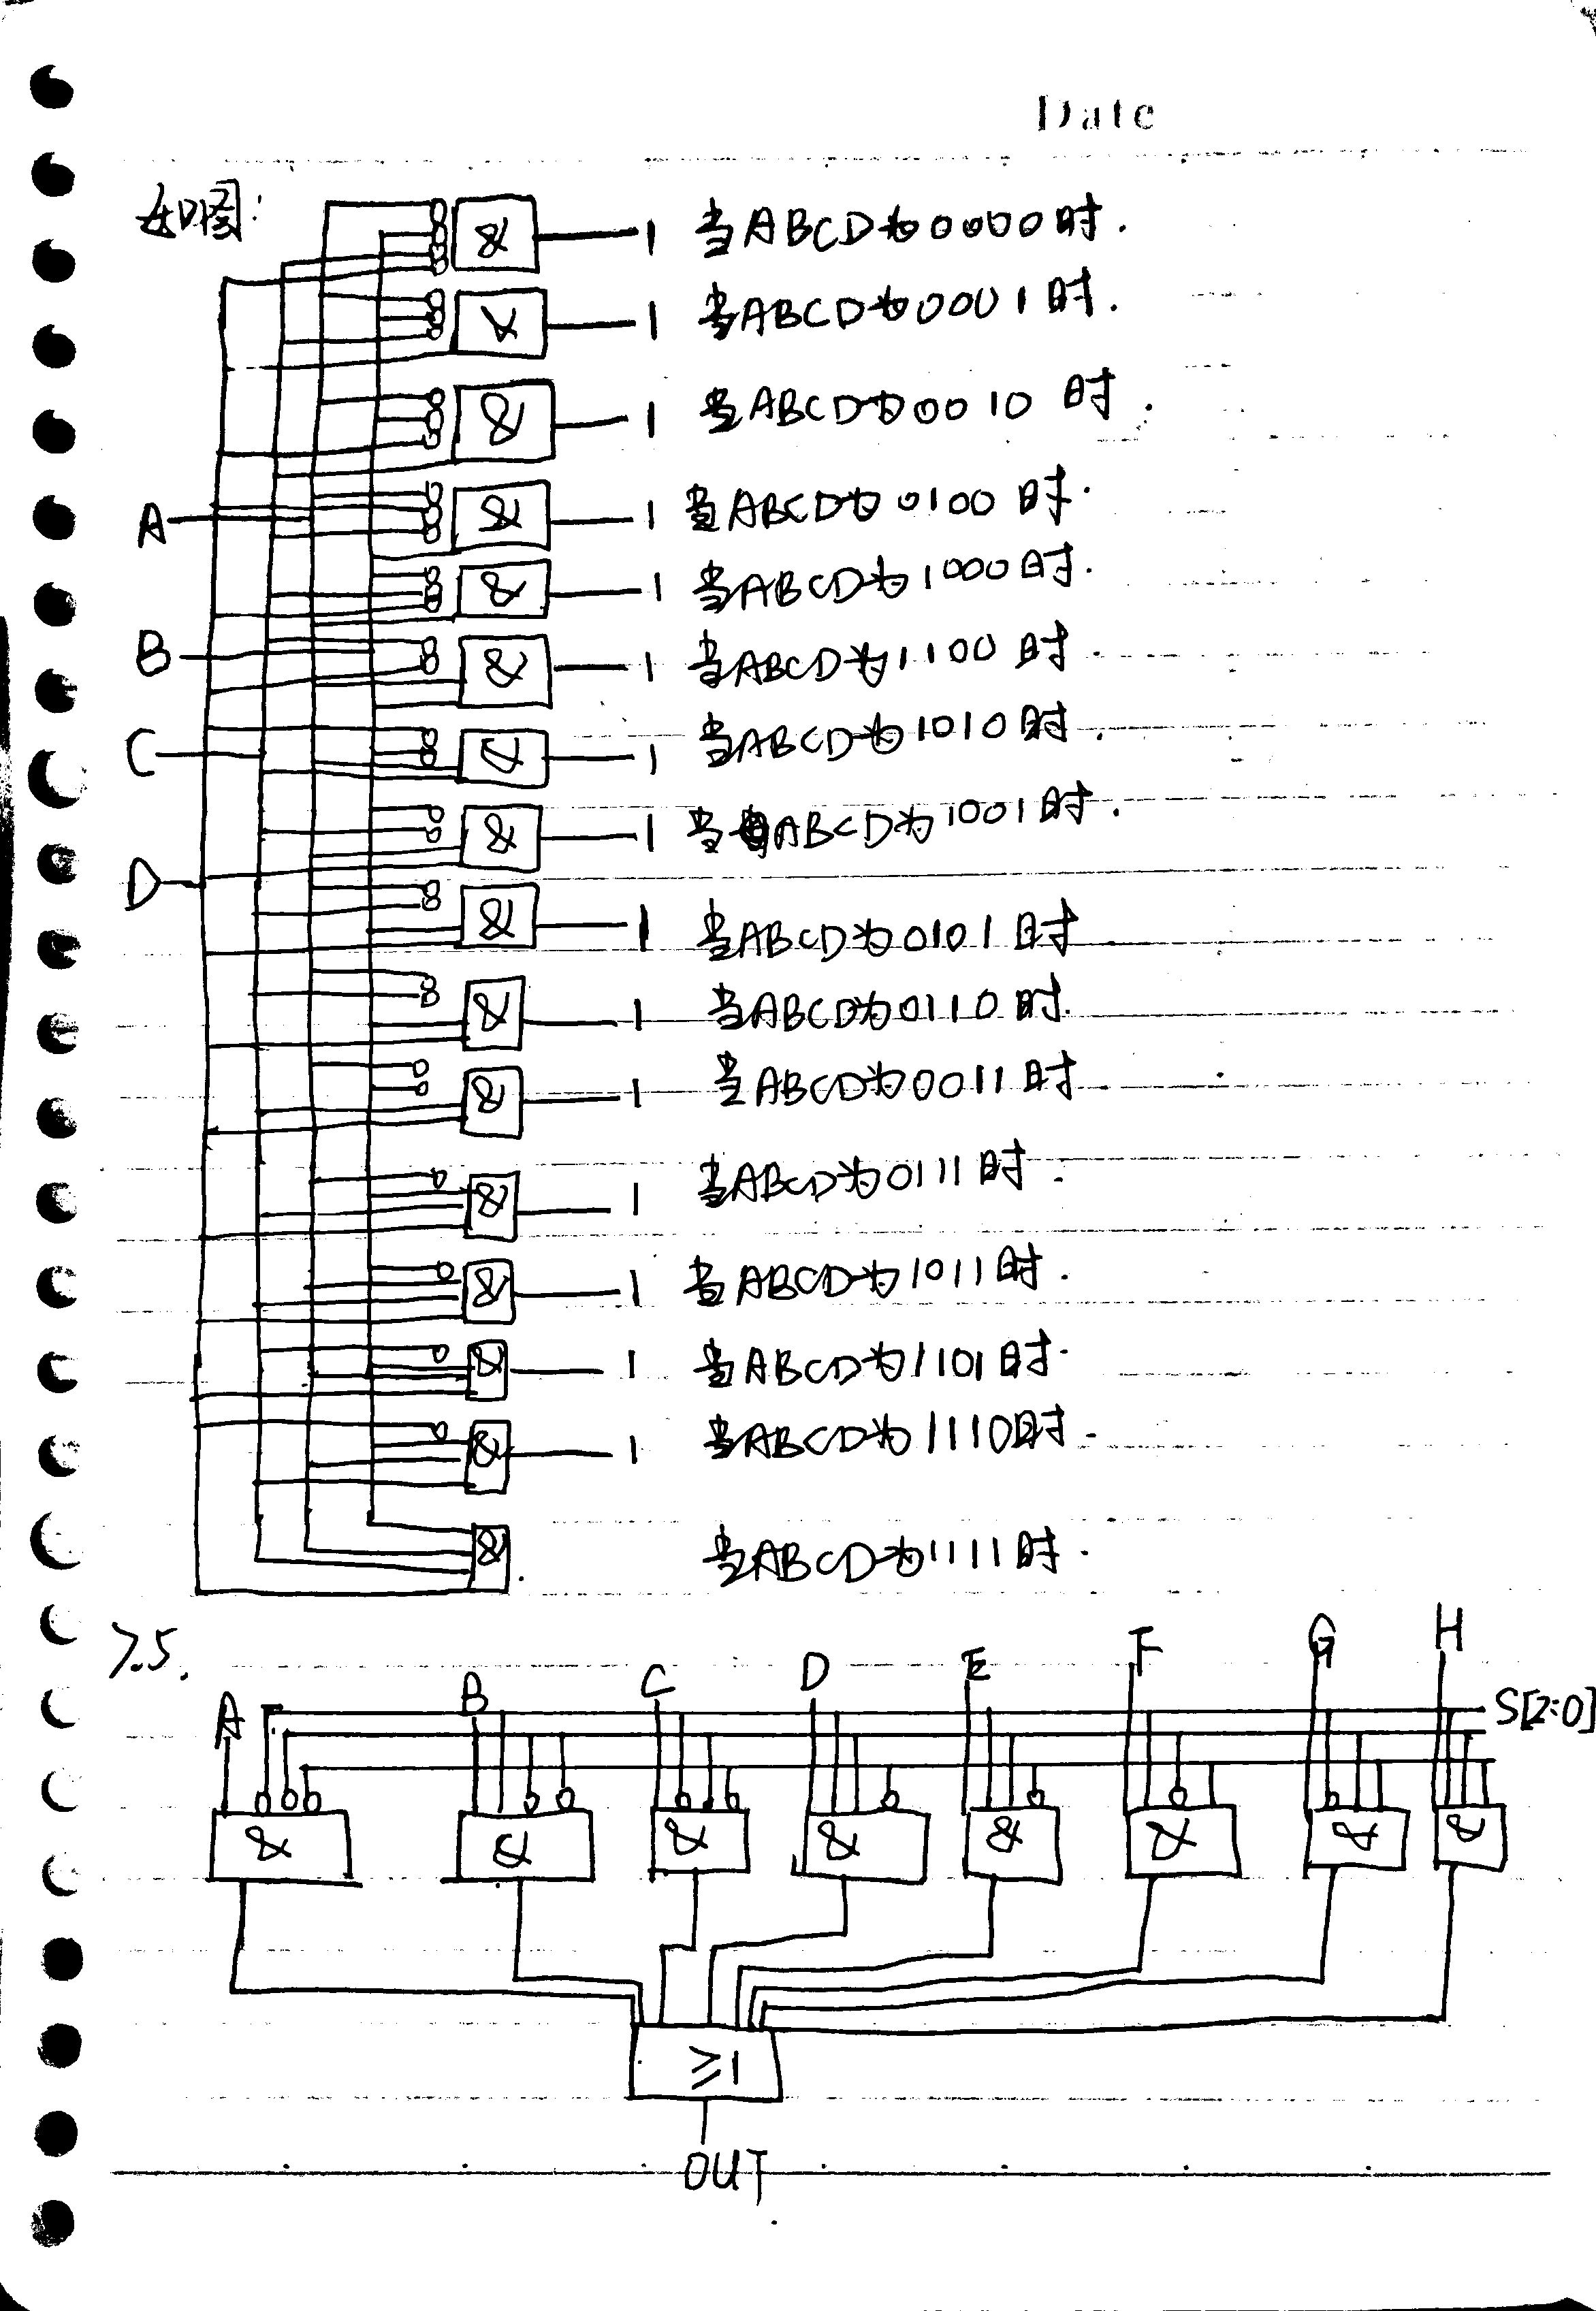 Date
如图:
& 1 当ABCD为0000时.
& 1 当ABCD为0001时.
& 1 当ABCD为0010时.
A & 1 当ABCD为0100时.
& 1 当ABCD为1000时.
B & 1 当ABCD为1100时.
C & 1 当ABCD为1010时.
& 1 当ABCD为1001时.
D & 1 当ABCD为0101时
& 1 当ABCD为0110时.
& 1 当ABCD为0011时
& 1 当ABCD为0111时.
& 1 当ABCD为1011时.
& 1 当ABCD为1101时.
& 1 当ABCD为1110时.
& 当ABCD为1111时.
7.5.
A B C D E F G H
S[2:0]
& & & & & & & &
≥1
OUT